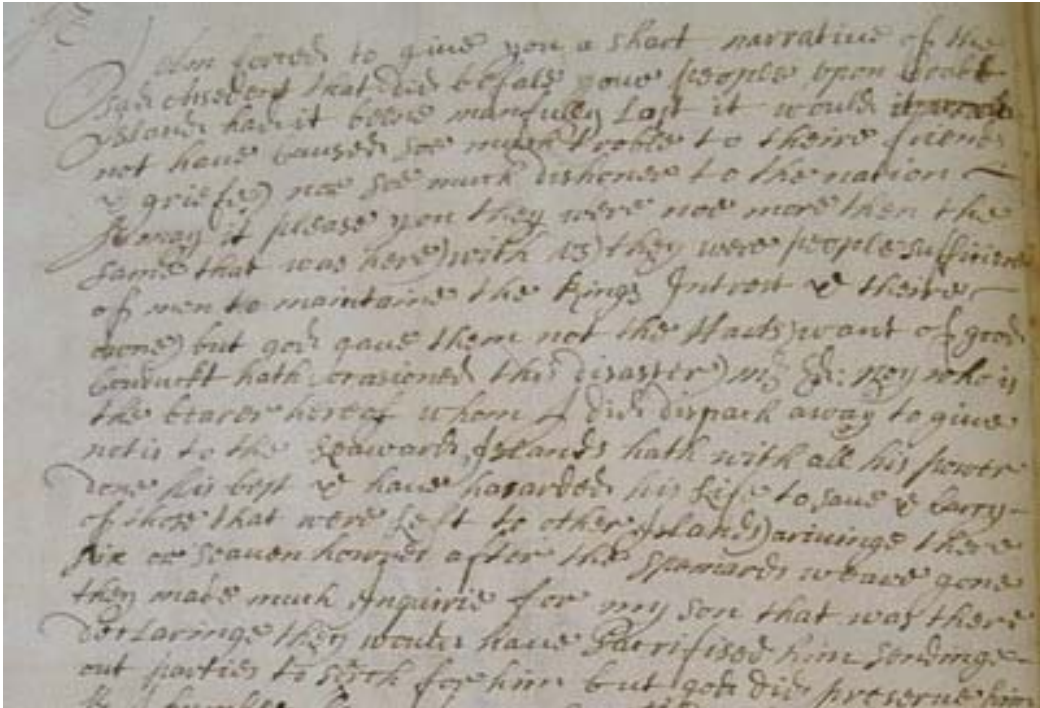 I am forced to give you a short narrative of the
sad that did befale your people upon
Island had it beene manfully Lost it would
not have caused soe much trooble to theire friends
& griefe) nor soe much dishoner to the nation
As may it please you they were noe more then the
same that was here) with us) they were people sufficient
of men to maintaine the Kings Intrest & theire
owne) but god gave them not the Harts) want of good
Conduckt hath ocasioned this disaster) mr Ed: who is
the bearer hereof whom I did dispach away to give
notis to the Seaward Islands hath with all his power
done his best & have hazarded his Life to save & Carry
of those that were Left to other Islands) arivinge there
six or seaven howres after the Spaniards weare gone
they made much Inquirie for my son that was there
declaringe they would have Sacrifised him sendinge
out parties to serch for him but god did preserve him